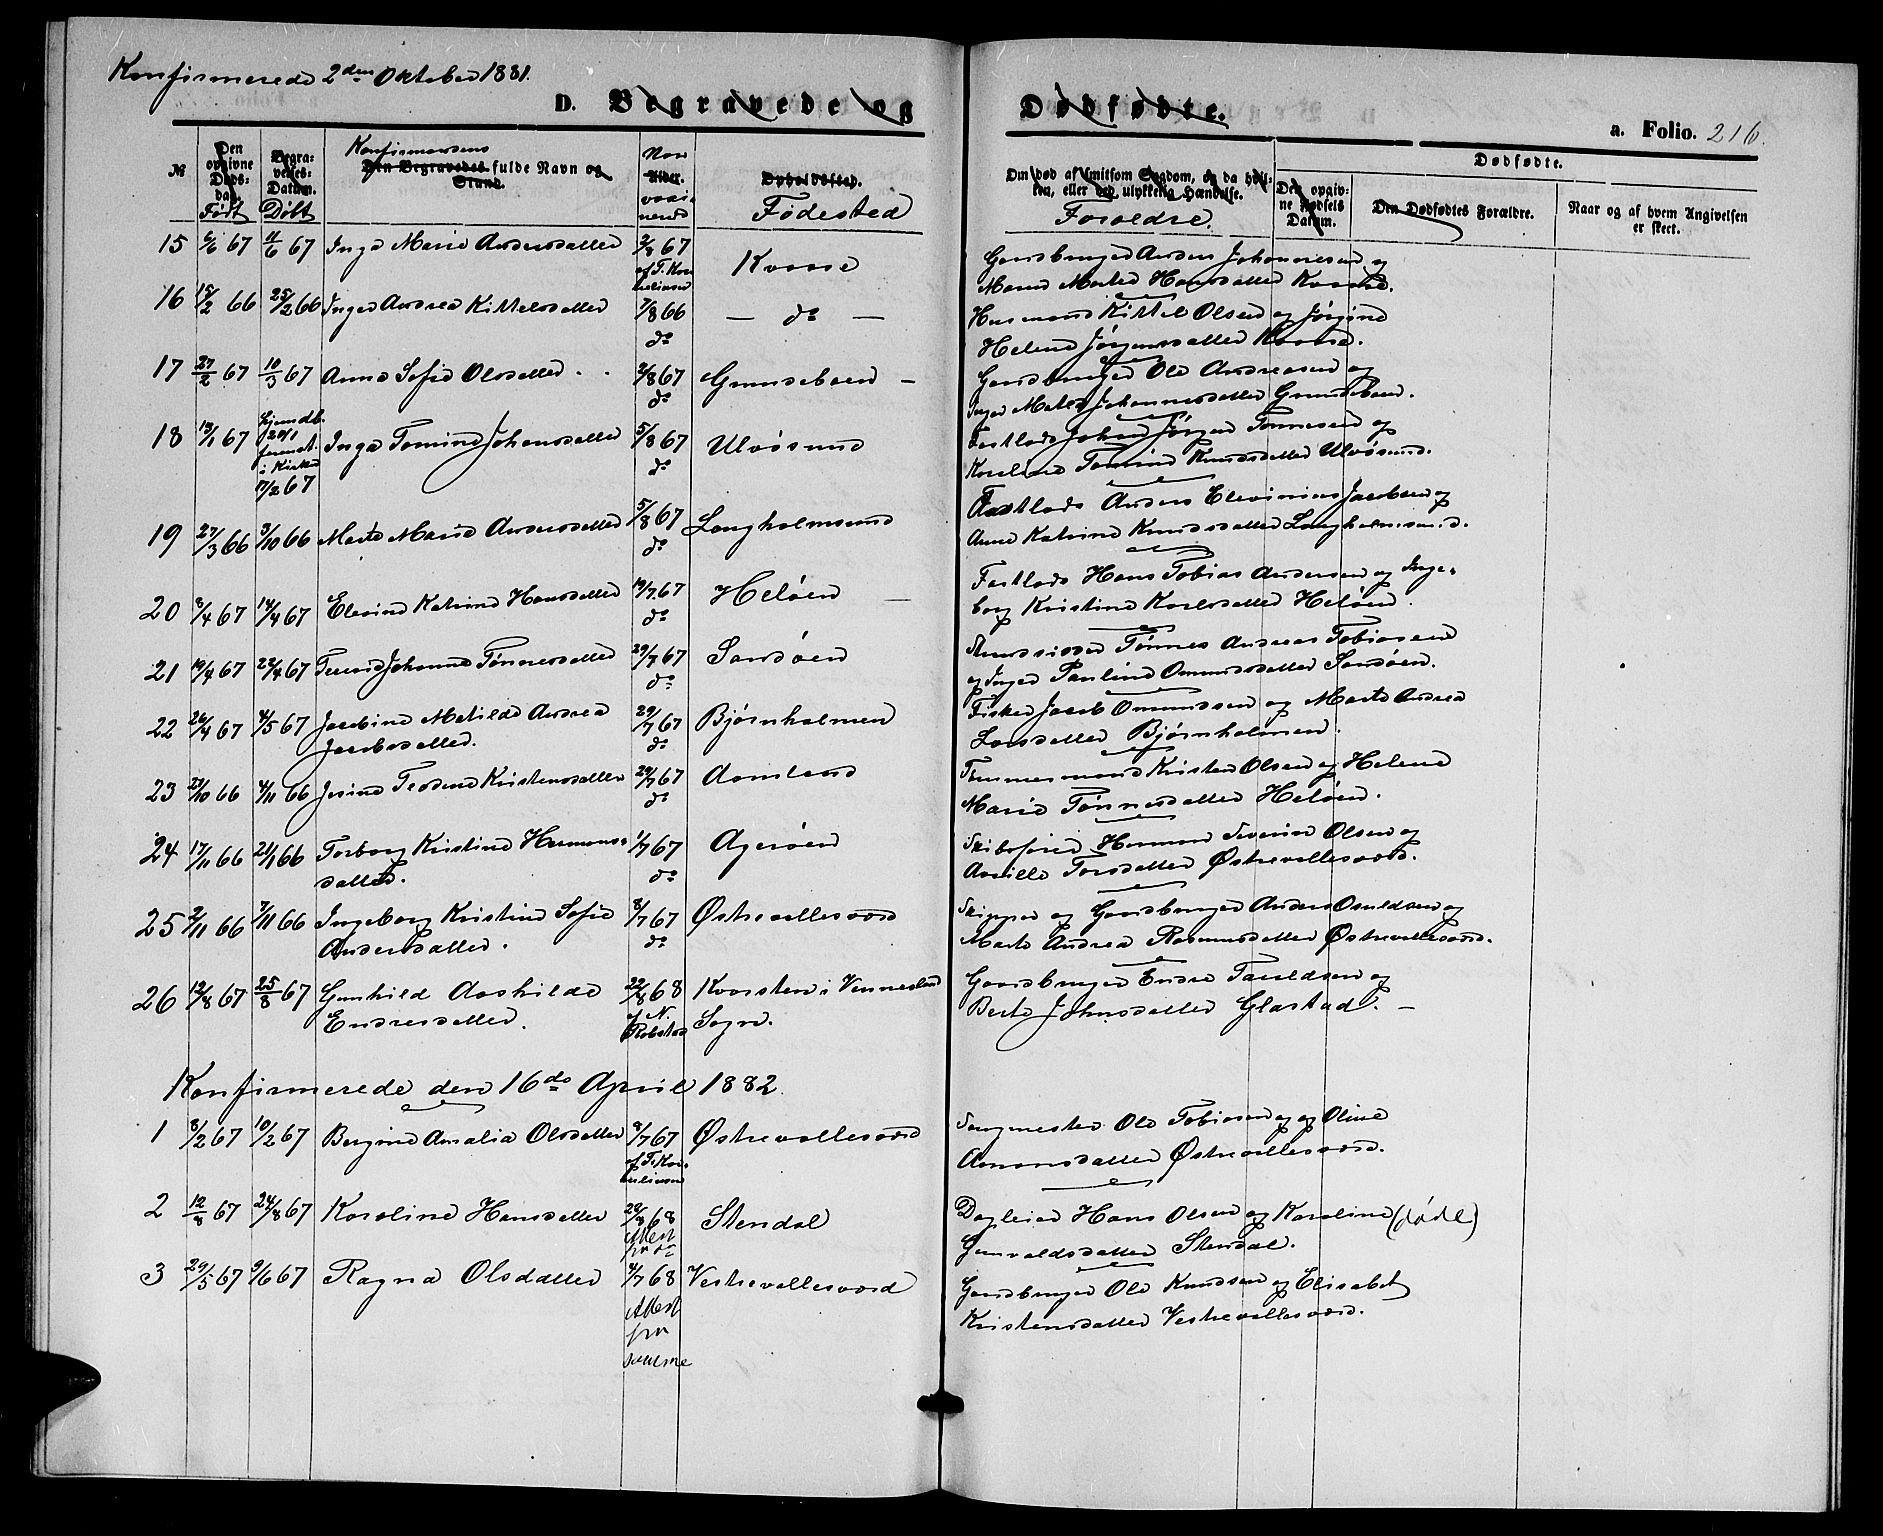 Konfirmerede 2den Oktober 1881.
D. Begravede og Dødfødte.
a. Folio. 216.
№
Den opgivne Døds-dag. Født
Begra-velses-Datum. Døbt
Konfirmandens
Den Begravedes fulde Navn og Stand.
Naar
Alder.
vacci-
nered
Opholdssted.
Fødested
Om død af smitsom Sygdom, og da hvil-
ken, eller ved ulykkelig Hændelse.
Forældre.
Dødfødte.
Den opgiv-
ne Fødsels
Datum.
Den Dødfødtes Forældre.
Naar og af hvem Angivelsen
er skeet.
15 5/6 67 11/6 67 Inga Marie Andersdatter 2/8 67 af T. Kor-nelinsen Kvaase Gaardbruger Anders Johannesen og
Maren Marta Hansdatter Kvaase.
16 15/2 66 25/2 66 Inger Andrea Kittelsdatter 7/8 66 do — do — Husmand Kittel Olsen og Jørgine
Helene Jørgensdatter Kvaase.
17 27/2 67 10/3 67 Anna Sofie Olsdatter 2/8 67 do Grundeboen Gaardbruger Ole Andreasen og
Inger Johannesdatter Grundeboen.
18 13/1 67 hjemdb. 20/1 fremst. i Kirken 17/2 67 Inga Tomine Johansdatter 5/8 67 do Ulvøsund Fastlods Johan Jørgen Tønnesen og
Karoline Tomine Knudsdatter Ulvøsund.
19 27/3 66 3/10 66 Marte Marie Andersdatter 5/8 67 do Langholmsund Fastlods Anders Elevinius Jacobsen og
Anne Katrine Knudsdatter Langholmsund.
20 8/4 67 14/4 67 Elevine Katrine Hansdatter 19/7 67 do Heløen — Fastlods Hans Tobias Andersen og Inge-
borg Kristine Karlsdatter Heløen.
21 19/4 67 22/4 67 Terese Johanne Tønnesdatter 29/7 67 do Sandøen Tønnes Andreas Tobiasen
og Inger Pauline Omundsdatter Sandøen.
22 26/4 67 4/5 67 Jacobine Matilde Andrea
Jacobsdatter. 29/7 67 do Bjørnholmen Fisker Jacob Omundsen og Marte Andrea
Larsdatter Bjørnholmen.
23 23/10 66 4/11 66 Jesine Terdene Kristensdatter 29/7 67 do Aamland Tømmermand Kristen Olsen og Helene
Marie Tønnesdatter Heløen.
24 17/11 66 21/1 66 Torborg Kristine Hermans-
datter. 1/7 67 do Agerøen Skibsfører Herman Severin Olsen og
Amille Torsdatter Østrevallesværd.
25 2/11 66 7/11 66 Ingeborg Kristine Sofie
Andersdatter. 8/7 67 do Østrevallesværd Skipper og Gaardbruger Anders Osuldsen og
Marte Andrea Rasmusdatter Østrevallesværd.
26 12/8 67 25/8 67 Gunhild Aashilde
Endresdatter. 22/8 68 af N. Robstad Kvarsten i Vennesland
Sogn. Gaardbruger Endre Taraldsen og
Berte Johnsdatter Glastad. —
Konfirmerede den 16de April 1882.
1 8/2 67 10/2 67 Bergine Amalia Olsdatter 8/7 67 af T. Kor-nelinsen Østrevallesværd Sangmester Ole Tobiasen og og Oline
Aanonsdatter Østrevallesværd.
2 12/8 67 24/8 67 Karoline Hansdatter 28/8 68 Attest fra do Stendal Dagleier Hans Olsen og Karoline (døde)
Gunvaldsdatter Stendal.
3 29/5 67 9/6 67 Ragna Olsdatter 4/7 68 Attest fra samme Vestrevallesværd Gaardbruger Ole Knudsen og Elisabet
Kristensdatter Vestrevallesværd.